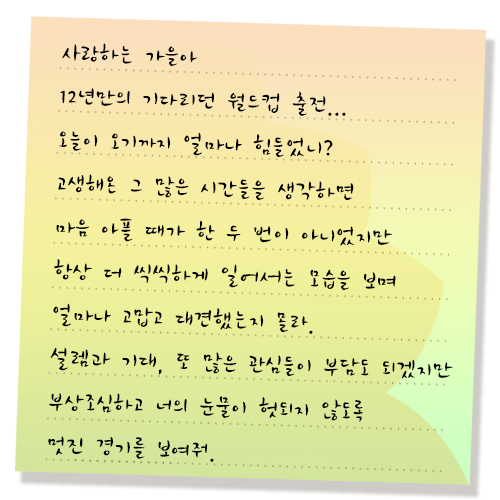 사랑하는 가을아
12년만의 기다리던 월드컵 출전...
오늘이 오기까지 얼마나 힘들었니?
고생해온 그 많은 시간들을 생각하면
마음 아플 때가 한 두 번이 아니었지만
항상 더 씩씩하게 일어서는 모습을 보며
얼마나 고맙고 대견했는지 몰라.
설렘과 기대, 또 많은 관심들이 부담도 되겠지만
부상조심하고 너의 눈물이 헛되지 않도록
멋진 경기를 보여줘.